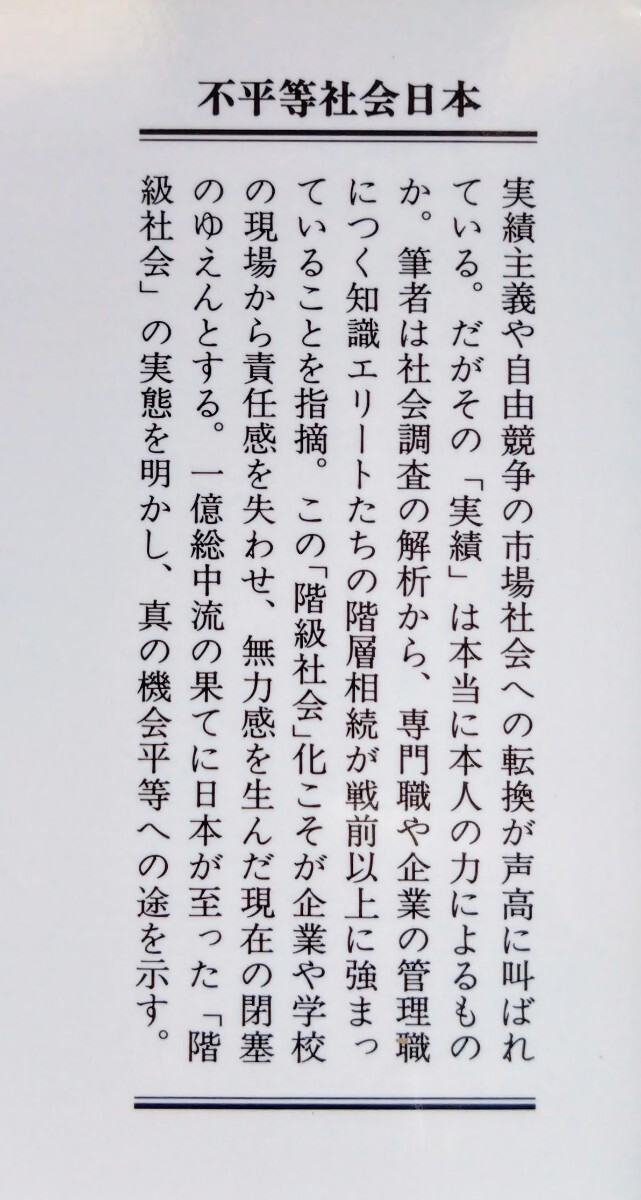 不平等社会日本
実績主義や自由競争の市場社会への転換が声高に叫ばれ
ている。だがその「実績」は本当に本人の力によるもの
か。筆者は社会調査の解析から、専門職や企業の管理職
につく知識エリートたちの階層相続が戦前以上に強まっ
ていることを指摘。この「階級社会」化こそが企業や学校
の現場から責任感を失わせ、無力感を生んだ現在の閉塞
のゆえんとする。一億総中流の果てに日本が至った「階
級社会」の実態を明かし、真の機会平等への途を示す。